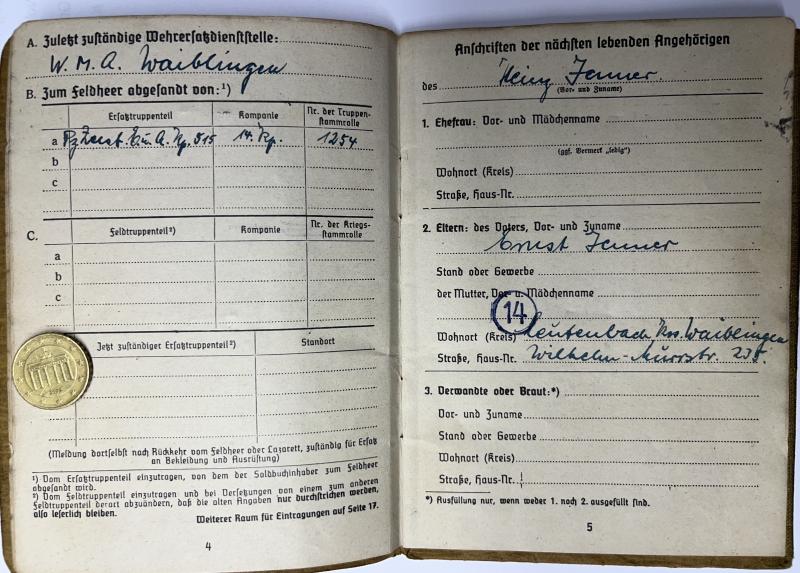 A. Zuletzt zuständige Wehrersatzdienststelle:
W. M. A. Waiblingen
B. Zum Feldheer abgesandt von:¹)
Ersatztruppenteil Kompanie Nr. der Truppen-
stammrolle
a 14. Kp. 1254
b
c
C. Feldtruppenteil²) Kompanie Nr. der Kriegs-
stammrolle
a
b
c
Jetzt zuständiger Ersatztruppenteil²) Standort
(Meldung dortselbst nach Rückkehr vom Feldheer oder Lazarett, zuständig für Ersatz
an Bekleidung und Ausrüstung)
¹) Vom Ersatztruppenteil einzutragen, von dem der Soldbuchinhaber zum Feldheer
abgesandt wird.
²) Vom Feldtruppenteil einzutragen und bei Versetzungen von einem zum anderen
Feldtruppenteil derart abzuändern, daß die alten Angaben nur durchstrichen werden,
also leserlich bleiben.
Weiterer Raum für Eintragungen auf Seite 17.
4
Anschriften der nächsten lebenden Angehörigen
des Heinz Jenner
(Vor- und Zuname)
1. Ehefrau: Vor- und Mädchenname
(ggf. Vermerk „ledig")
Wohnort (Kreis)
Straße, Haus-Nr.
2. Eltern: des Vaters, Vor- und Zuname
Ernst Jenner
Stand oder Gewerbe
der Mutter, Vor- u. Mädchenname
14
Wohnort (Kreis) Leutenbach Krs. Waiblingen
Straße, Haus-Nr. Wilhelm-Murrstr.
3. Verwandte oder Braut:*)
Vor- und Zuname
Stand oder Gewerbe
Wohnort (Kreis)
Straße, Haus-Nr.
*) Ausfüllung nur, wenn weder 1. noch 2. ausgefüllt sind.
5